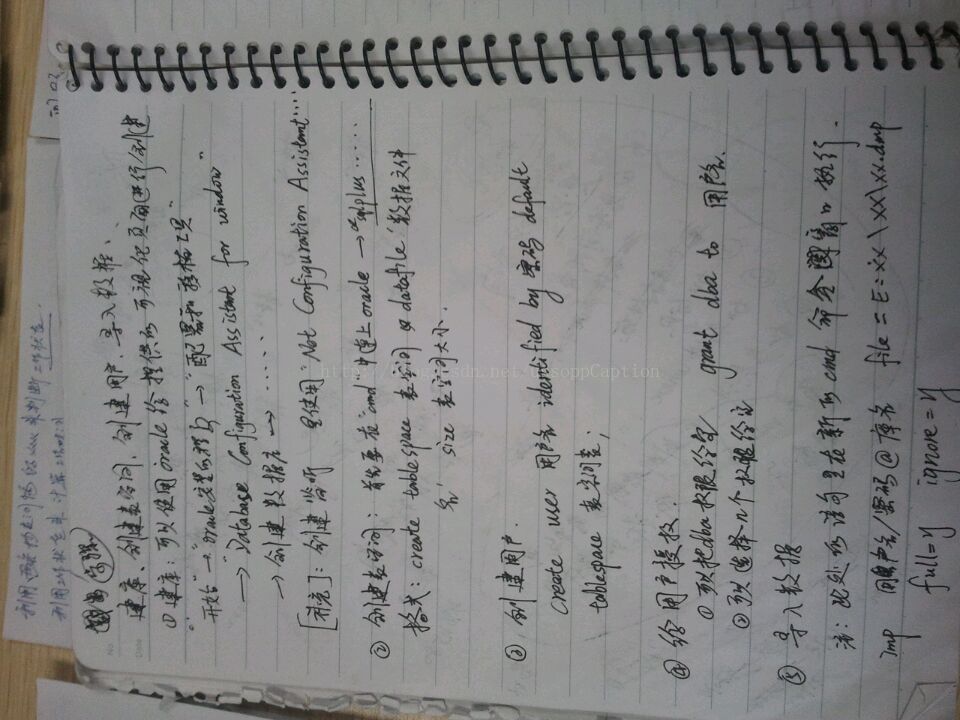 建库、创建表空间、创建用户、导入数据:
① 建库: 可以使用oracle给提供的可视化页面进行创建
开始"→"oracle安装的
→"配置和移植工具"
→"Database Configuration Assistant for window"
→创建数据库→……
[补充]: 创建监听 是使用"Net Configuration Assistant…
② 创建表空间: 首先要在"cmd"中连上oracle → sqlplus……
格式: create tablespace 表空间名 datafile '数据文件
名' size 表空间大小.
③ 创建用户.
create user 用户名 identified by 密码 default
tablespace 表空间;
④ 给用户授权.
① 可以把dba权限给它 grant dba to 用户名.
② 可以选择n个权限给它
⑤ 导入数据
注: 此处的语句要在新的cmd命令窗口执行.
imp 用户名/密码@库名 file=E:\xx\xx\xx.dmp
full=y ignore=y